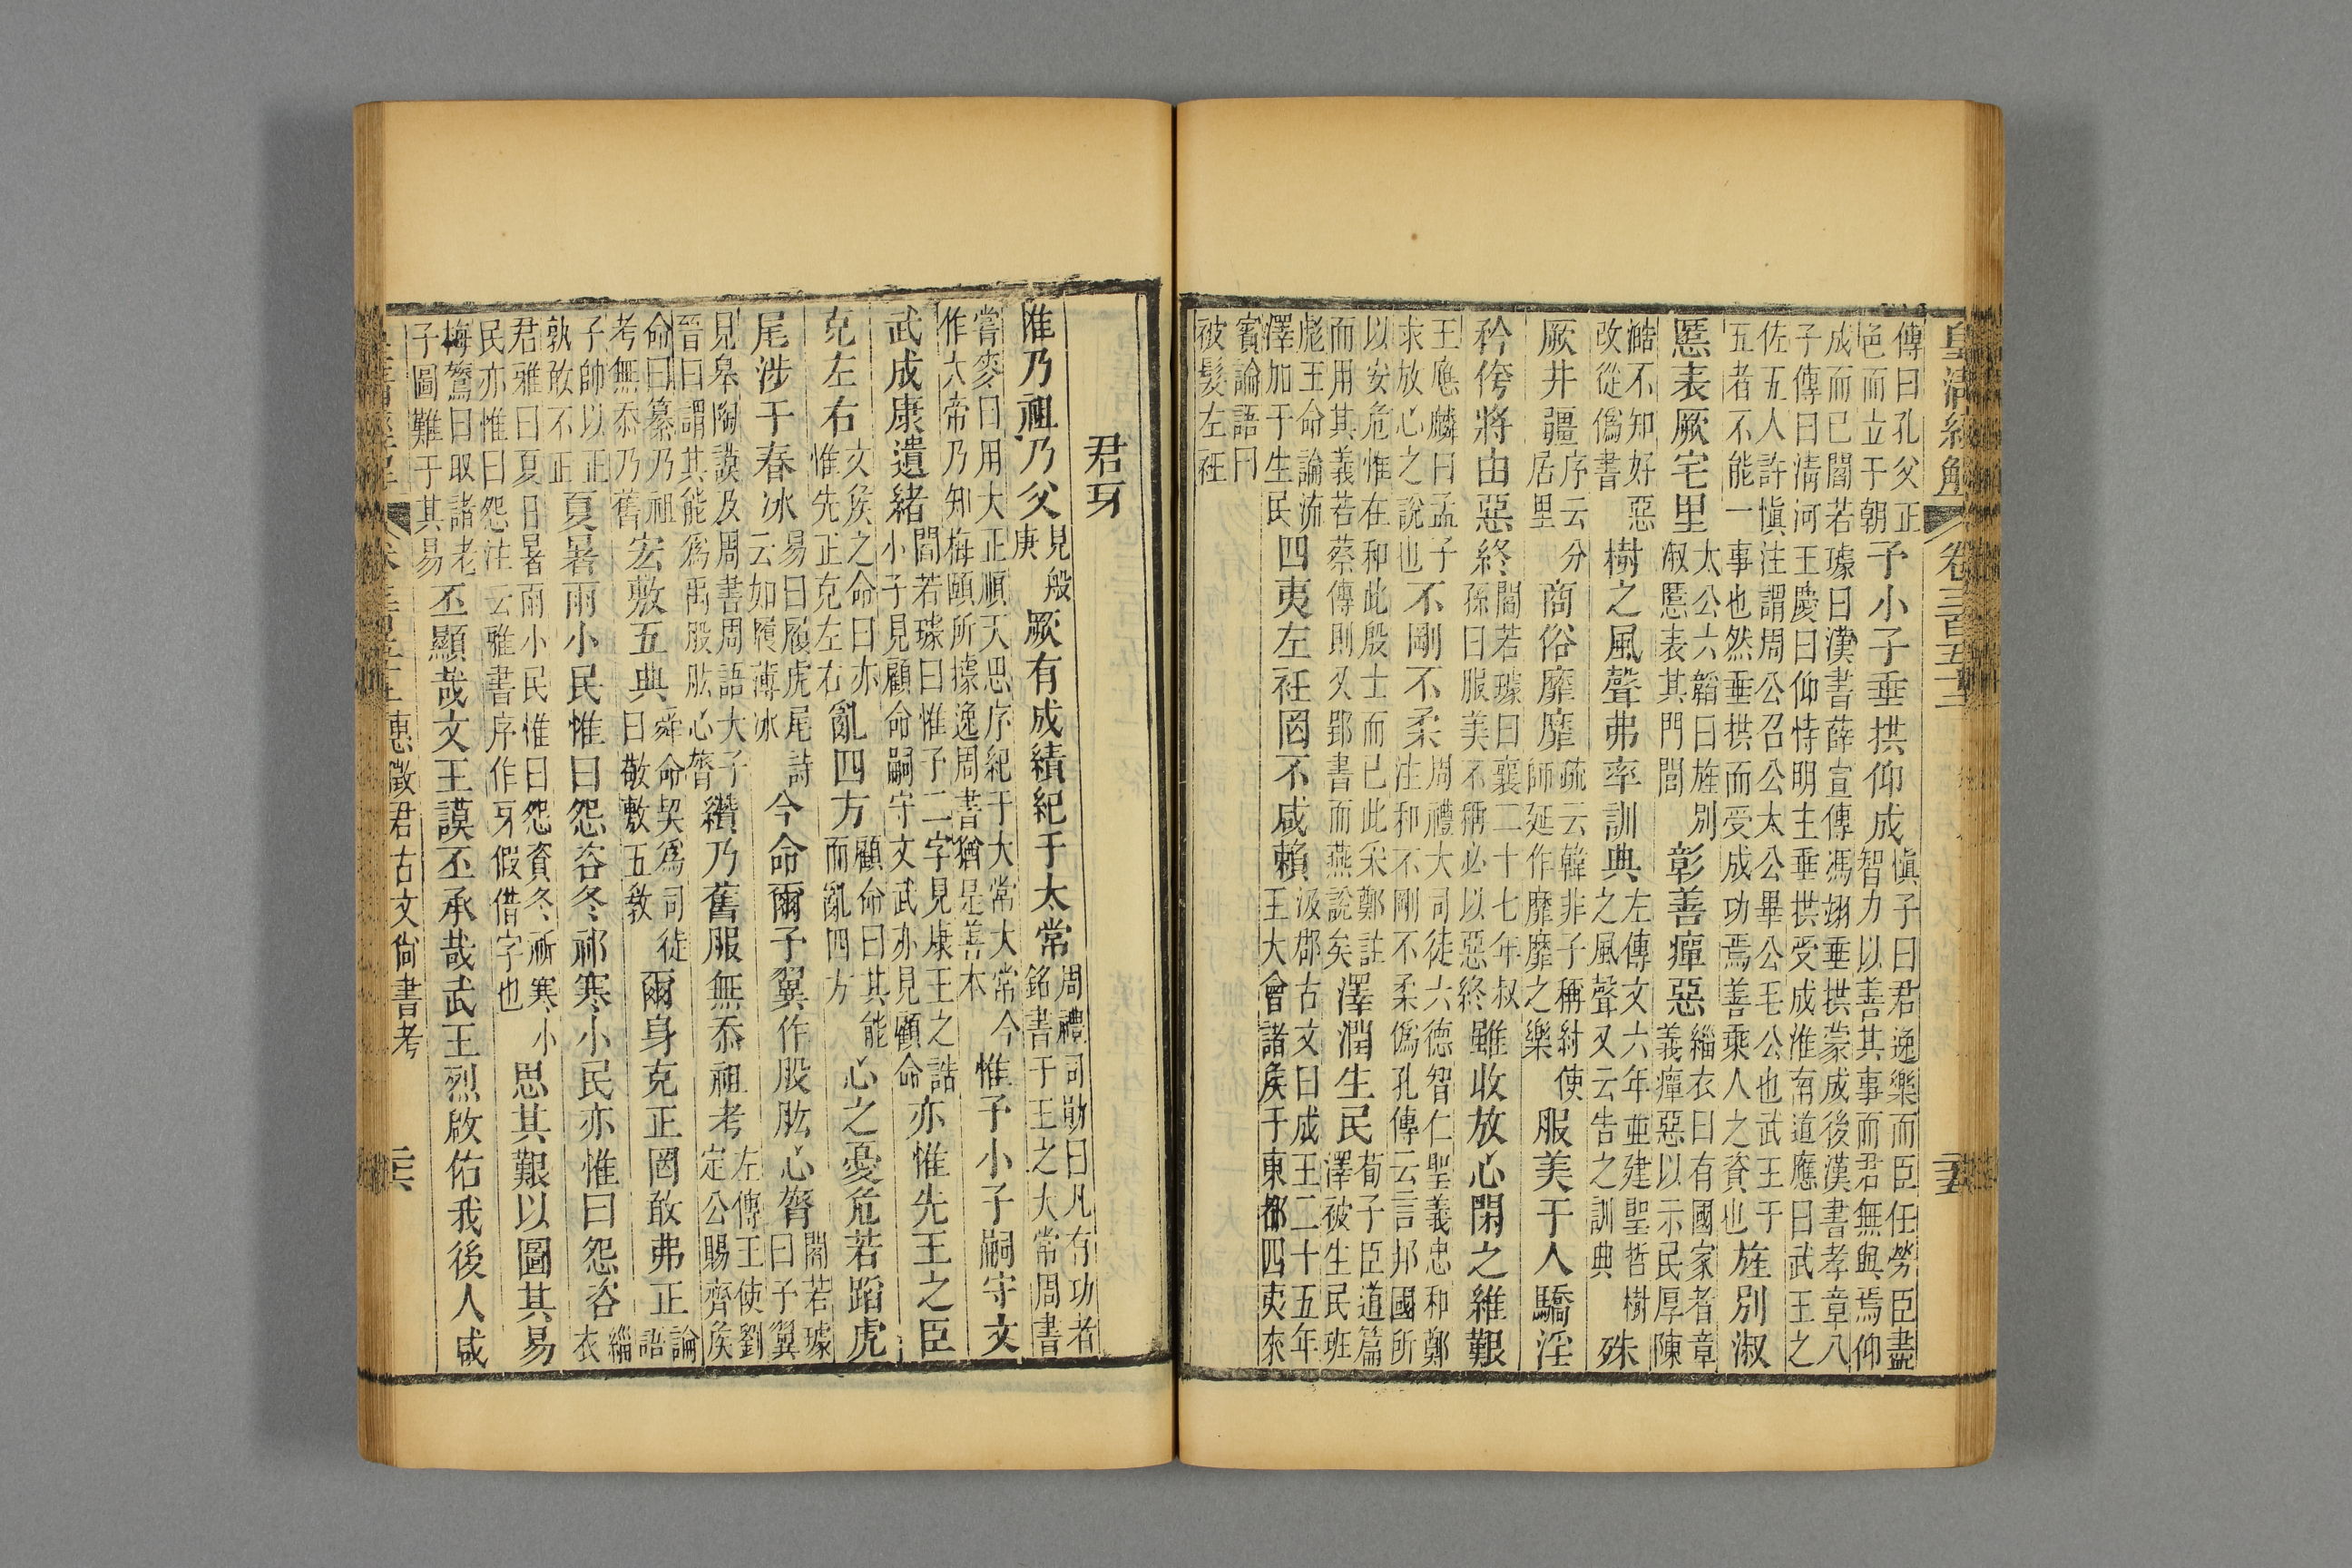 皇清經解 卷三百五十二 二十五
傳曰孔父正色而立于朝子小子垂拱仰成慎子曰君逸樂而臣任勞臣盡智力以善其事而君無與焉仰
成而已閻若璩曰漢書薛宣傳馮翊垂拱蒙成後漢書孝章八子傳曰清河王慶曰仰恃明主垂拱受成淮南道應曰武王之
佐五人許慎注謂周公召公太公畢公毛公也武王于五者不能一事也然垂拱而受成功焉善乘人之資也旌別淑
慝表厥宅里太公六韜曰旌別淑慝表其門閭彰善癉惡緇衣曰有國家者章義癉惡以示民厚陳
澔不知好惡改從僞書樹之風聲弗率訓典左傳文六年並建聖哲樹之風聲又云告之訓典殊
厥井疆序云分居里商俗靡靡疏云韓非子稱紂使師延作靡靡之樂服美于人驕淫
矜侉將由惡終閻若璩曰襄二十七年叔孫曰服美不稱必以惡終雖收放心閑之維艱
王應麟曰孟子求放心之說也不剛不柔周禮大司徒六德智仁聖義忠和鄭注和不剛不柔僞孔傳云言邦國所
以安危惟在和此殷士而已此采鄭註而用其義若蔡傳則又郢書而燕說矣澤潤生民荀子臣道篇澤被生民班
彪王命論流澤加于生民四夷左衽罔不咸賴汲郡古文曰成王二十五年王大會諸侯于東都四夷來
賓論語曰被髮左衽
君牙
惟乃祖乃父見般庚厥有成績紀于太常周禮司勳曰凡有功者銘書于王之大常周書
嘗麥曰用大正順天思序紀于大常大常今作大帝乃知梅頤所據逸周書猶是善本惟予小子嗣守文
武成康遺緒閻若璩曰惟予二字見康王之誥小子見顧命嗣守文武亦見顧命亦惟先王之臣
克左右文侯之命曰亦惟先正克左右亂四方顧命曰其能而亂四方心之憂危若蹈虎
尾涉于春冰易曰履虎尾詩云如履薄冰今命爾予翼作股肱心膂閻若璩曰予翼
見皋陶謨及周書周語大子晉曰謂其能爲禹股肱心膂纘乃舊服無忝祖考左傳王使劉定公賜齊侯
命曰纂乃祖考無忝乃舊宏敷五典舜命契爲司徒曰敬敷五教爾身克正罔敢弗正論語
子帥以正孰敢不正夏暑雨小民惟曰怨咨冬祁寒小民亦惟曰怨咨緇衣
君雅曰夏日暑雨小民惟曰怨資冬祈寒小民亦惟曰怨注云雅書序作牙假借字也思其艱以圖其易
梅鷟曰取諸老子圖難于其易丕顯哉文王謨丕承哉武王烈啟佑我後人咸
惠徵君古文尚書考 二十六